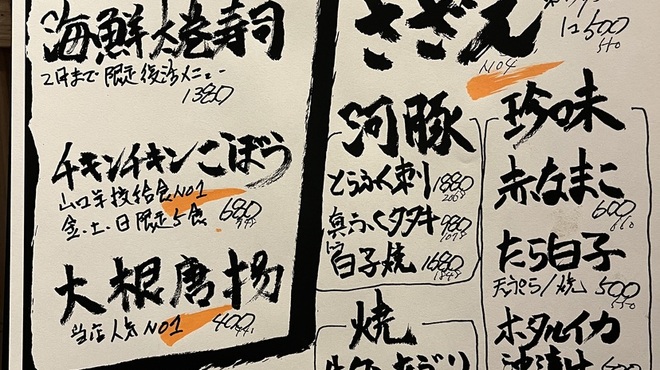 海鮮太巻寿司
2月まで限定復活メニュー
1380
チキンチキンごぼう
山口学校給食NO1
金、土、日限定5食 680
大根唐揚
当店人気NO1 400
さざえ
NO4
河豚
とらふく刺 1880
真ふくタタキ 980
白子焼 1680
焼
珍味
赤なまこ
600
たら白子
天ぷら/焼 500
550
ホタルイカ
沖漬け